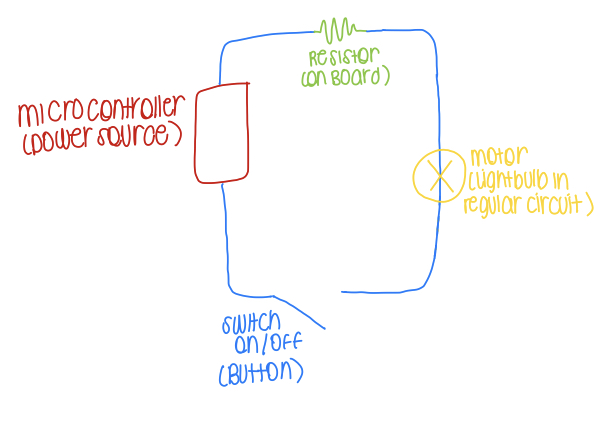 Resistor
(on Board)
microcontroller
(power source)
motor
(Lightbulb in
regular circuit)
switch
on/off
(Button)